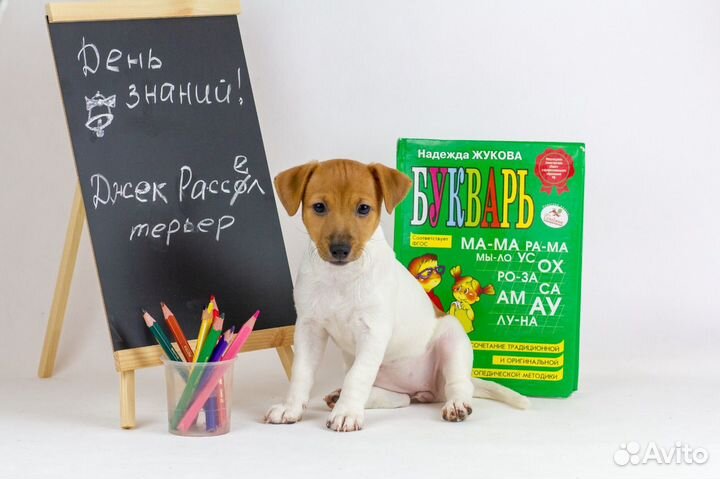 День
знаний!
Джек Рассел
терьер
Надежда ЖУКОВА
БУКВАРЬ
Соответствует
ФГОС
МА-МА РА-МА
МЫ-ЛО УС
РО-ЗА ОХ
СА
АМ АУ
ЛУ-НА
СОЧЕТАНИЕ ТРАДИЦИОННОЙ
И ОРИГИНАЛЬНОЙ
ОПЕДИЧЕСКОЙ МЕТОДИКИ
Avito